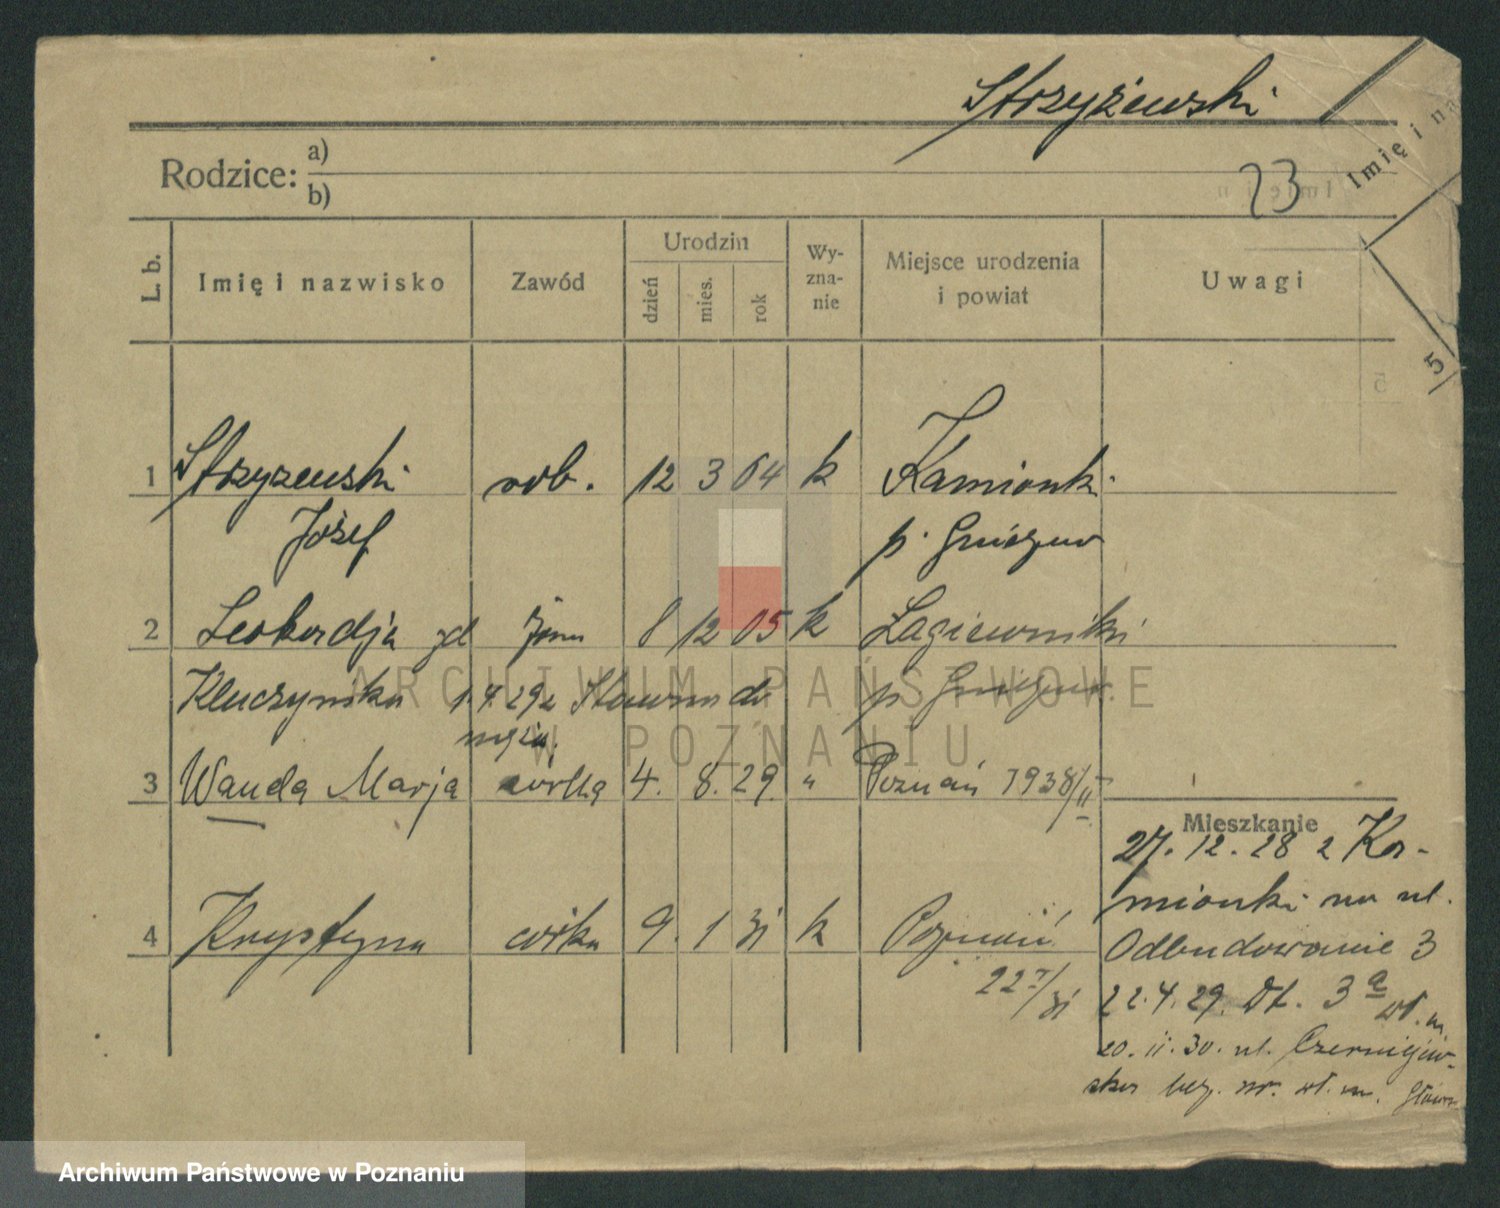 Strzyżewski
Imię i na
Rodzice: a)
b)
23
L. b.
Imię i nazwisko
Zawód
Urodzin
dzień
mies.
rok
Wy-
zna-
nie
Miejsce urodzenia
i powiat
Uwagi
5
1 Strzyżewski rob. 12 3 04 k Kamionki
Józef p. Gniezno
2 Leokadja zd żona 8 12 05 k Łagiewniki
Kluczyńska 1.7.29 z Sławna do p. Gniezno
męża.
3 Wanda Marja córka 4. 8. 29. " Poznań 1938/II
Mieszkanie
27. 12. 28 z Ka-
mionki na ul.
4 Krystyna córka 9. 1 31 k Poznań
Odbudowanie 3
22 I/31
22.4.29. Dt. 3a wł. m.
20. II. 30. ul. Czerniejew-
ska bez. nr. wł. m.
ARCHIWUM PAŃSTWOWE
W POZNANIU
Archiwum Państwowe w Poznaniu